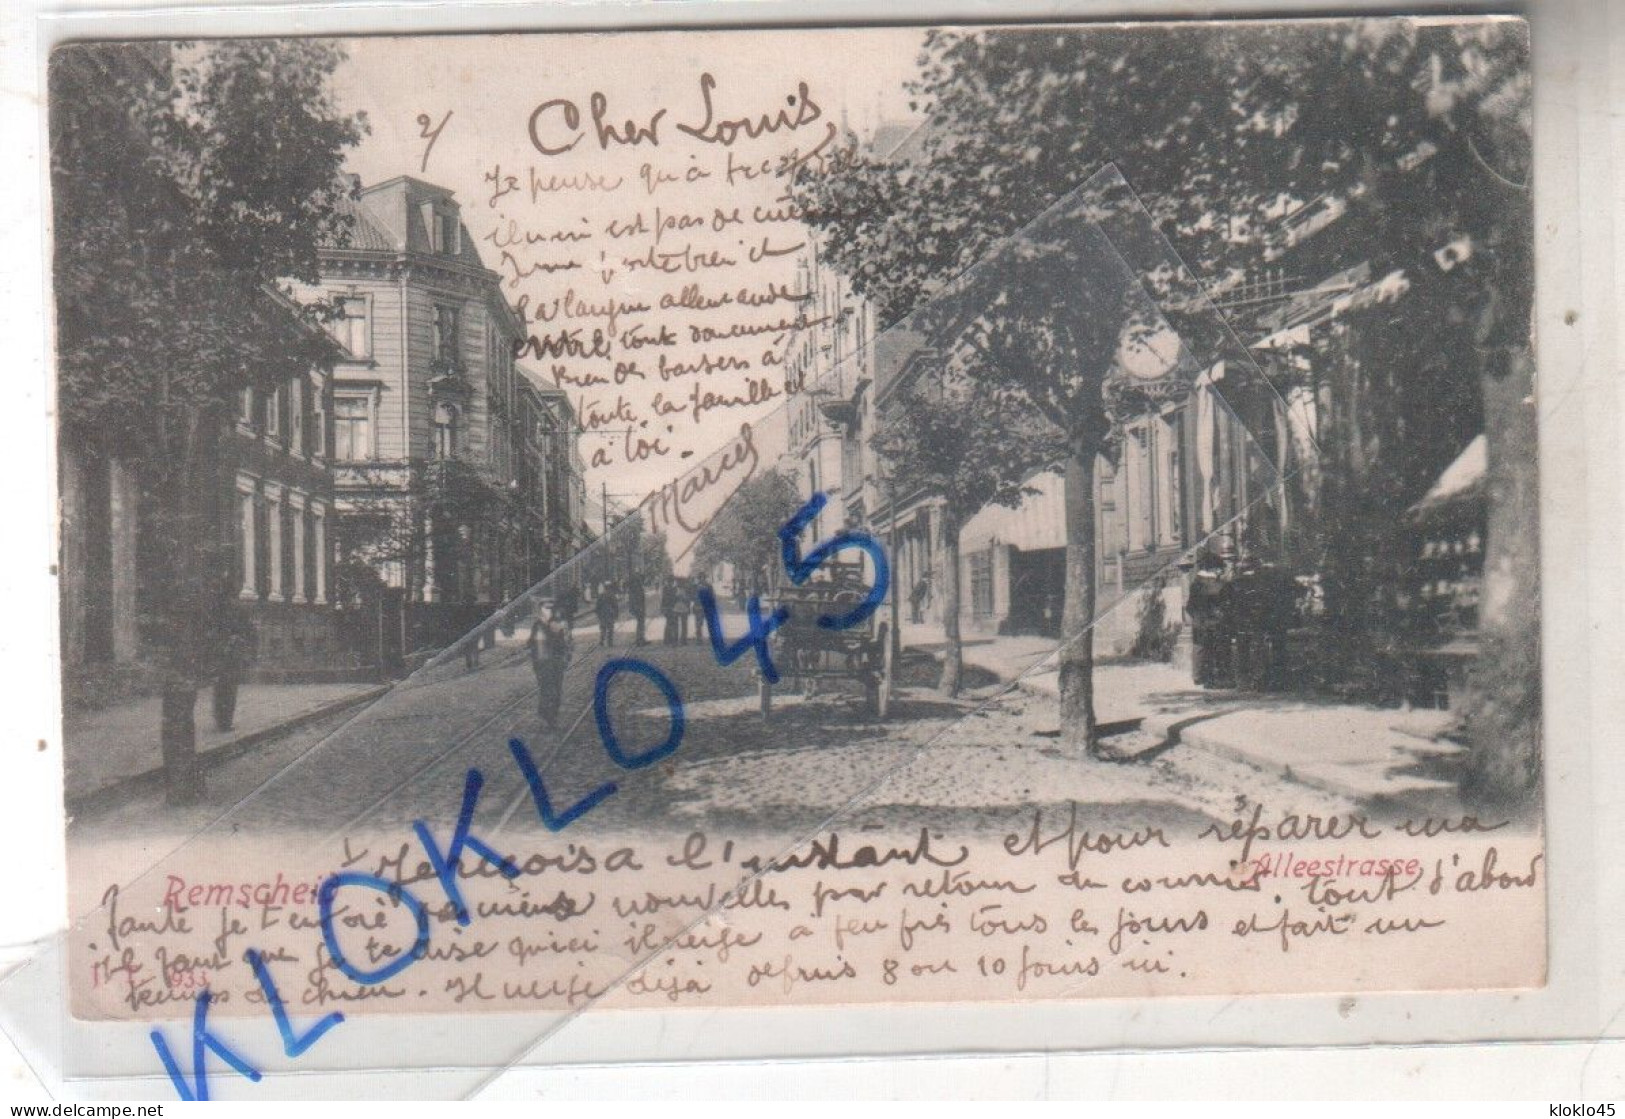 2/
Cher Louis,
Je pense qu'à
il n'en est pas de
Je me porte bien et
la langue allemande
entre tout doucement
Bien des baisers à
toute la famille et
à toi.
Marcel
1 Je reçois a l'instant et pour réparer ma
Remscheid
Alleestrasse
faute je t'envoie nouvelles par retour du courrier. Tout d'abord
il faut que je te dise qu'ici il neige à peu près tous les jours et fait un
temps de chien. Il neige déjà depuis 8 ou 10 jours ici.
933
KLOKLO 45
delcampe.net
kloklo45